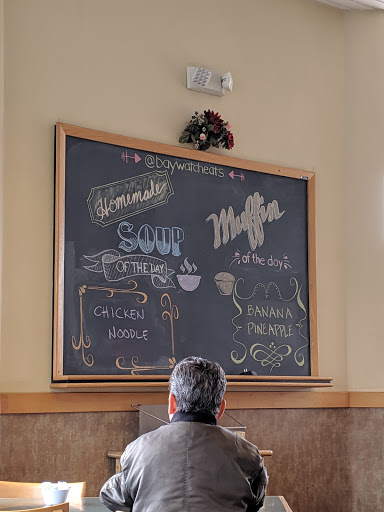 @baywatcheats
Homemade
SOUP
OF THE DAY
CHICKEN
NOODLE
Muffin
of the day
BANANA
PINEAPPLE